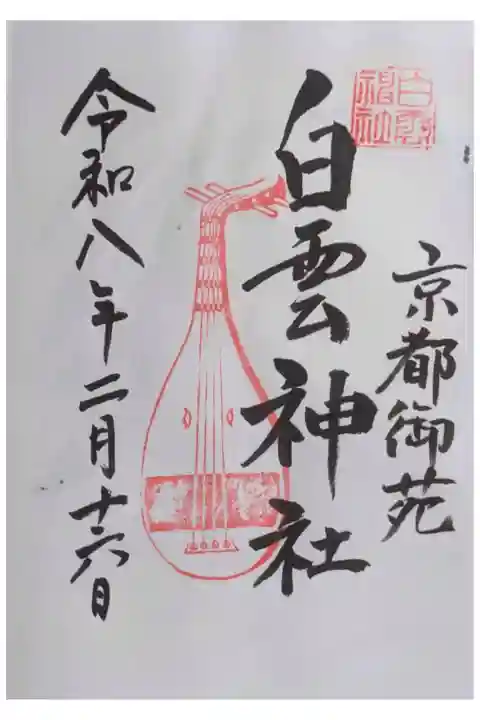 京都御苑
白雲神社
白雲神社
令和八年二月十六日